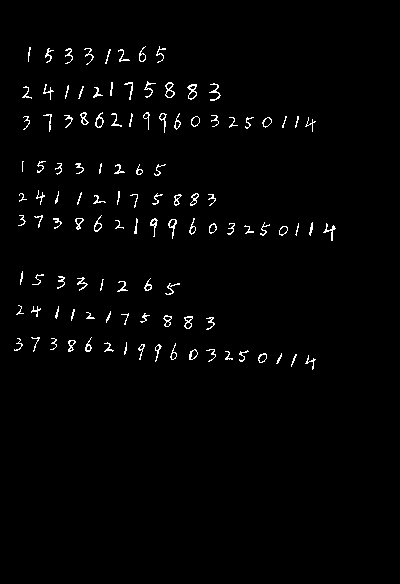 1 5 3 3 1 2 6 5
2 4 1 1 2 1 7 5 8 8 3
3 7 3 8 6 2 1 9 9 6 0 3 2 5 0 1 1 4
1 5 3 3 1 2 6 5
2 4 1 1 2 1 7 5 8 8 3
3 7 3 8 6 2 1 9 9 6 0 3 2 5 0 1 1 4
1 5 3 3 1 2 6 5
2 4 1 1 2 1 7 5 8 8 3
3 7 3 8 6 2 1 9 9 6 0 3 2 5 0 1 1 4